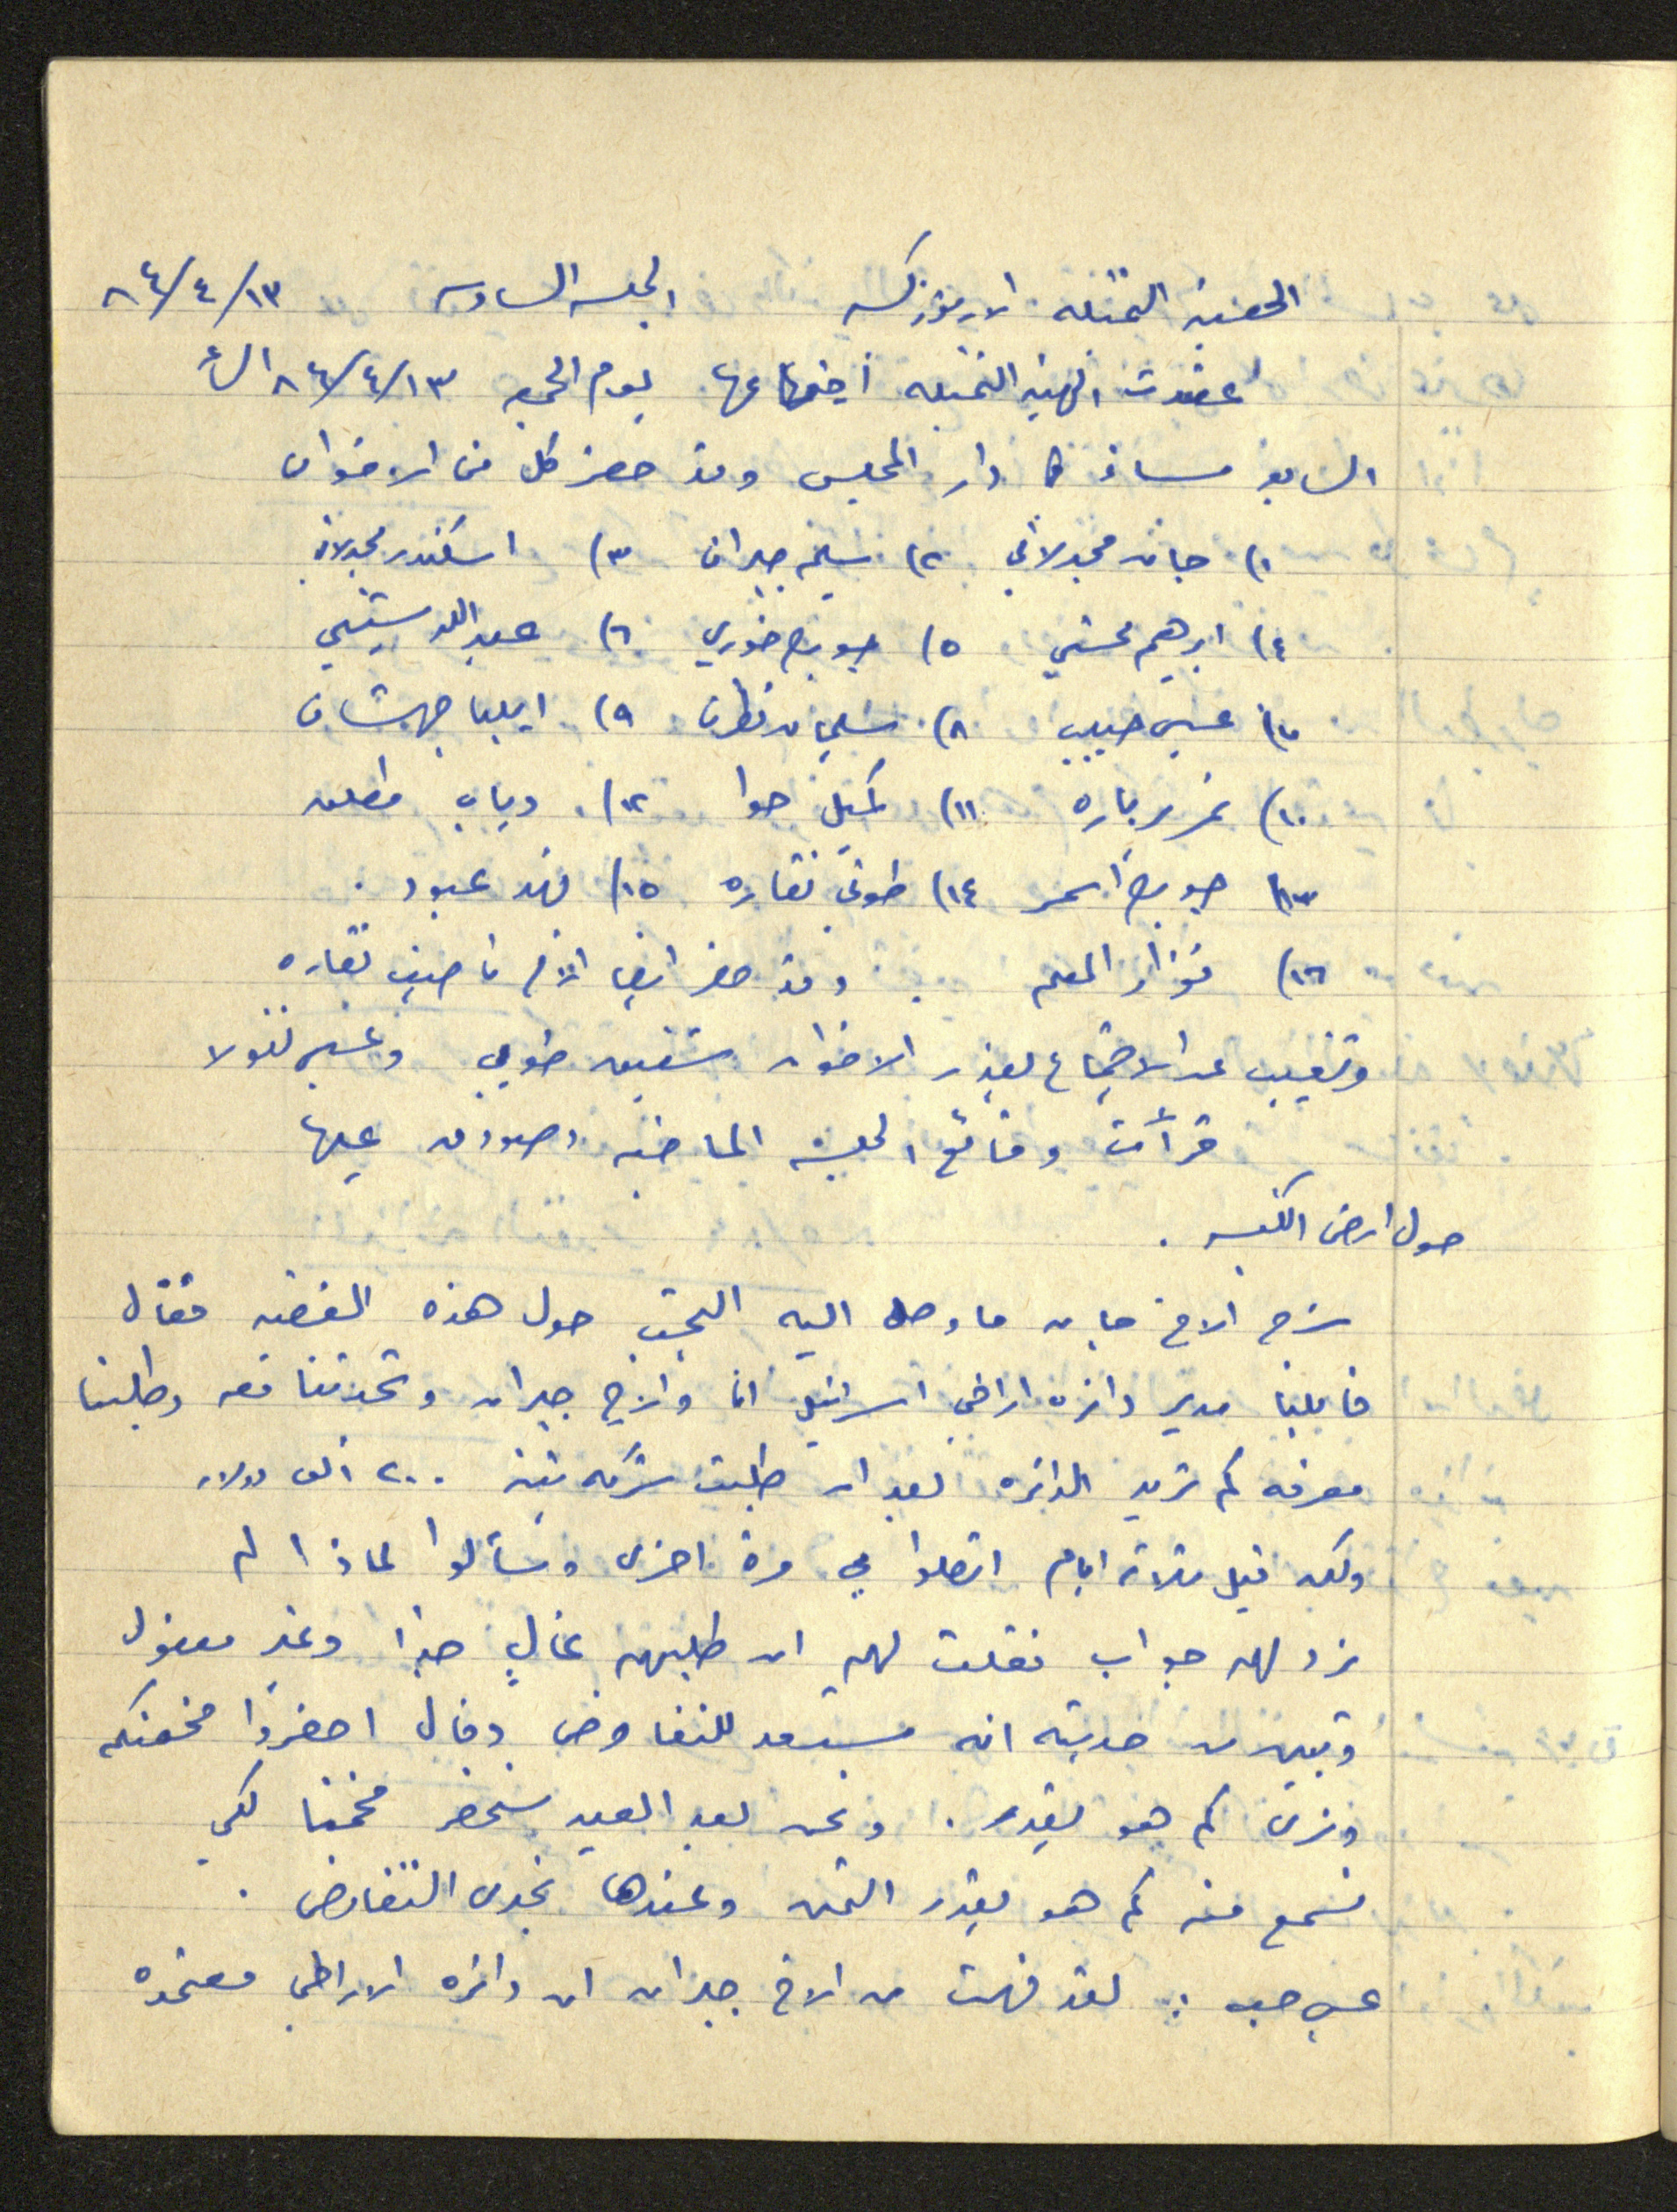 الهيئة التمثيله الارثوذكسيه الجلسه السادسه ٨٤/٤/١٣
عقدت الهيئه التمثيله اجتماعها يوم الجمعه ٨٤/٤/١٣ الساعه
السابعه مساء في دار المجلس وقد حضر كل من الاخوان
١) جان مجدلاني ٢) سليم جبران ٣) اسكندر مجدلاني
٤) ابرهيم محشي ٥) جورج خوري ٦) عبدالله شتيي
٧) عيسى حبيب ٨) سليمان قطران ٩) ايليا جهشان
١٠) نمر برباره ١١) كميل حوا ١٢) دياب مطلق
١٣) جورج اسمر ١٤) طوني نقاره ١٥) فهد عبود .
١٦) فؤاد المعلم . وقد حضر ايضا الاخ ناصيف نقاره
وتغيب عن الاجتماع بعذر الاخوان شفيق طوبي وعيسى نقولا
قرأت وقائع الجلسه الماضيه وصودق عليها
حول ارض الكنيسه .
شرح الاخ جان ما وصل اليه البحث حول هذه القضيه فقال
قابلنا مدير دائره اراضي اسرائيل انا والاخ جبران وتحدثنا معه وطلبنا
معرفه كم تريد الدائره بعد ان طلبت شركه ٢٠٠ الف دولار
ولكن قبل ثلاثه ايام اتصلوا بي مرة اخرى وسألوا لماذا لم
نرد لهم جواب فقلت لهم ان طلبهم غالي جدا وغير معقول
وتبين من حديثه انه مستعد للتفاوض وقال احضروا مخمنكم
ونرى كم هو يقدر . ونحن بعد العيد سنحضر مخمنا لكي
نسمع منه كم هو يقدر الثمن وعندها نجري التفاوض .
عيسى حبيب : لقد فهمت من الاخ جبران ان دائره الاراضي معتمده